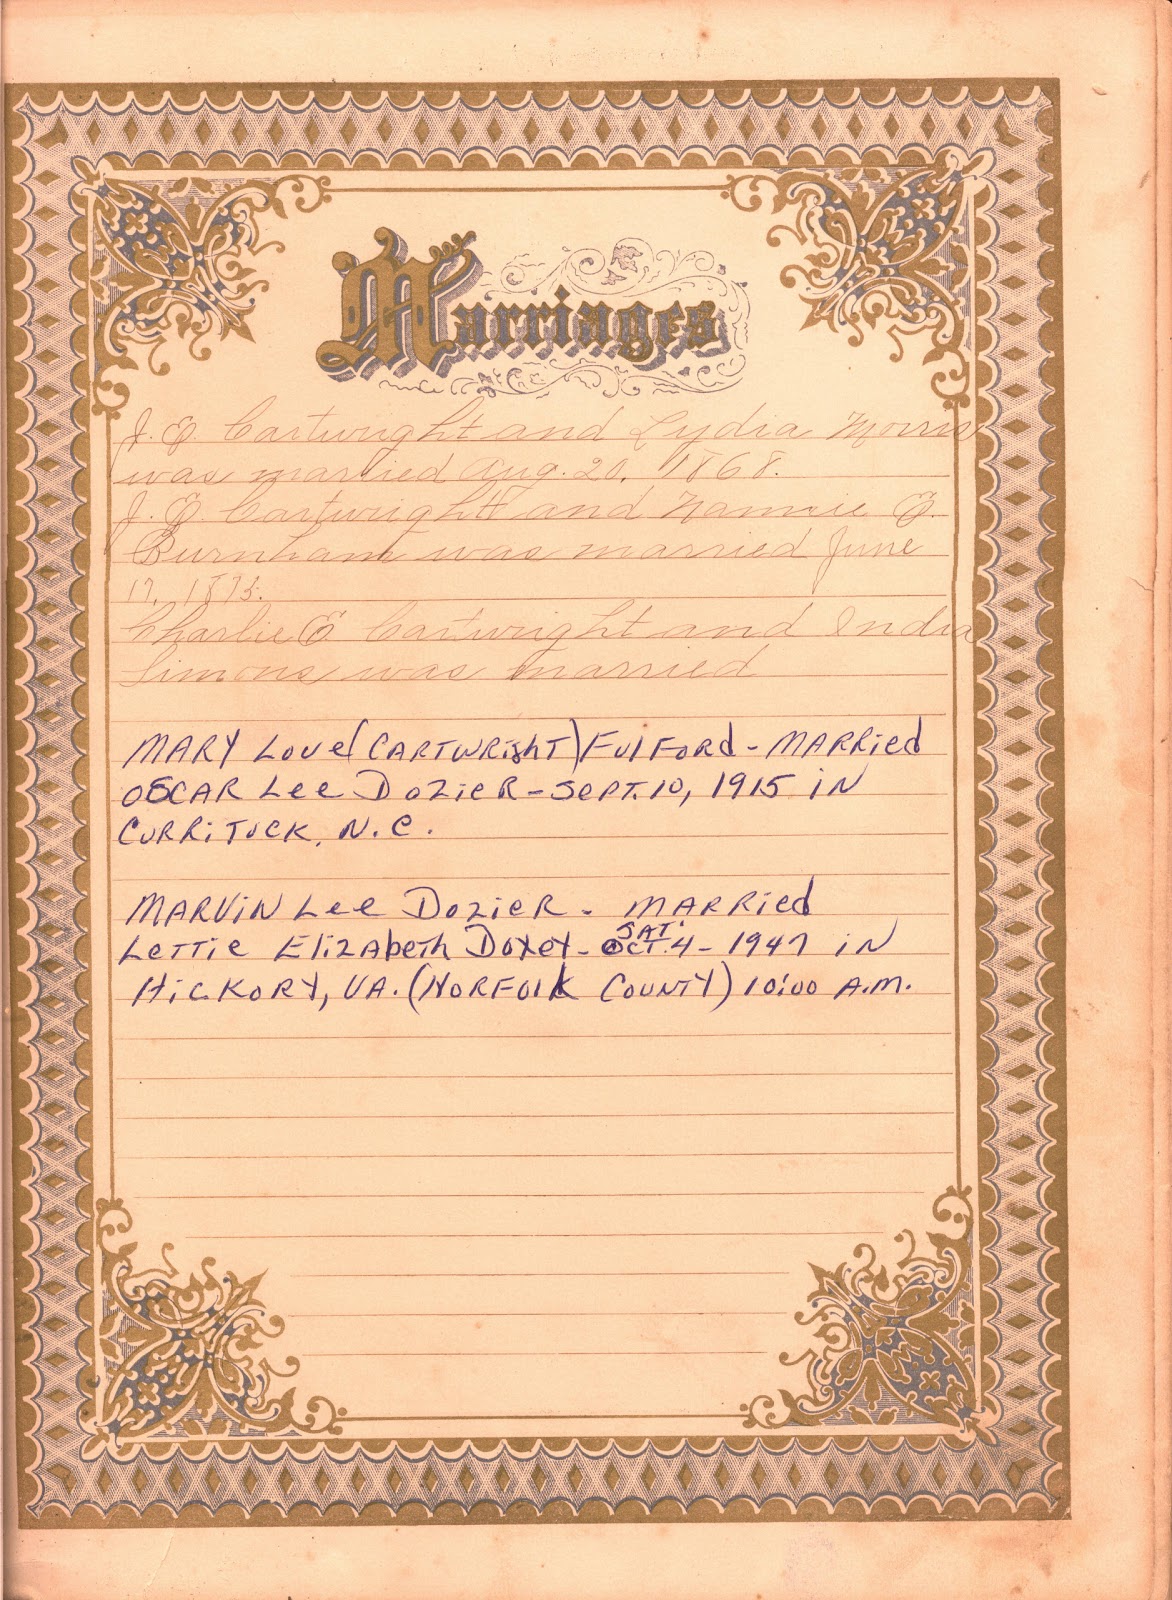 Marriages
J. E. Cartwright and Lydia Morris
was married Aug. 20, 1868.
J. E. Cartwright and Nannie E.
Burnham was married June
17, 1875.
Charlie E Cartwright and India
Simons was married
MARY LOVE (CARTWRIGHT) FULFORD - MARRIED
OSCAR LEE DOZIER - SEPT. 10, 1915 IN
CURRITUCK, N.C.
MARVIN LEE DOZIER - MARRIED
SAT.
LETTIE ELIZABETH DOXEY - OCT. 4 - 1947 IN
HICKORY, VA. (NORFOLK COUNTY) 10:00 A.M.